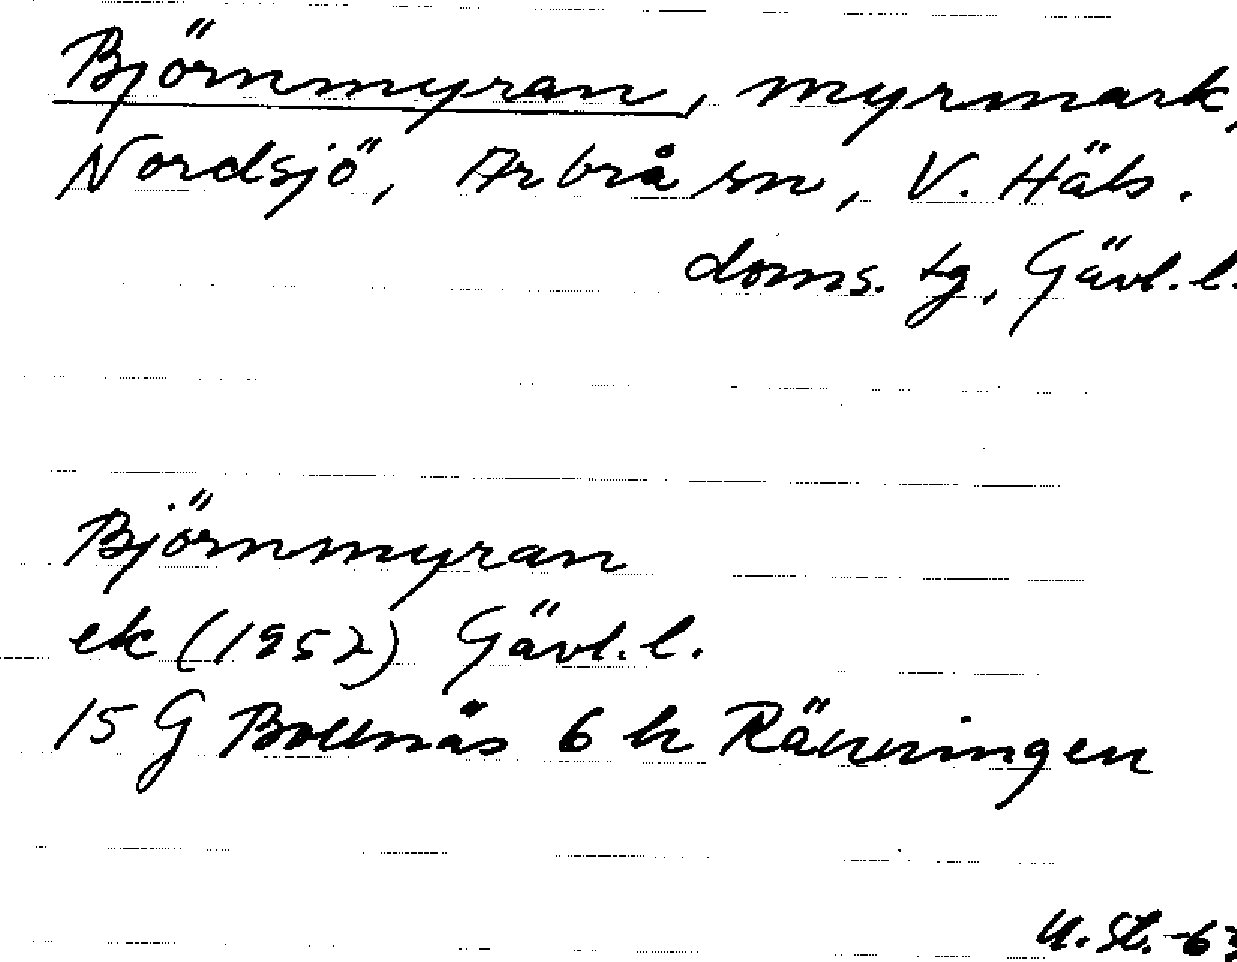 Björnmyran, myrmark,
Nordsjö, Arbrå sn, V. Häls.
doms. tg, Gävl. l.
Björnmyran
ek (1952) Gävl. l.
15 G Bollnäs 6 h Ränningen
U. St. -63